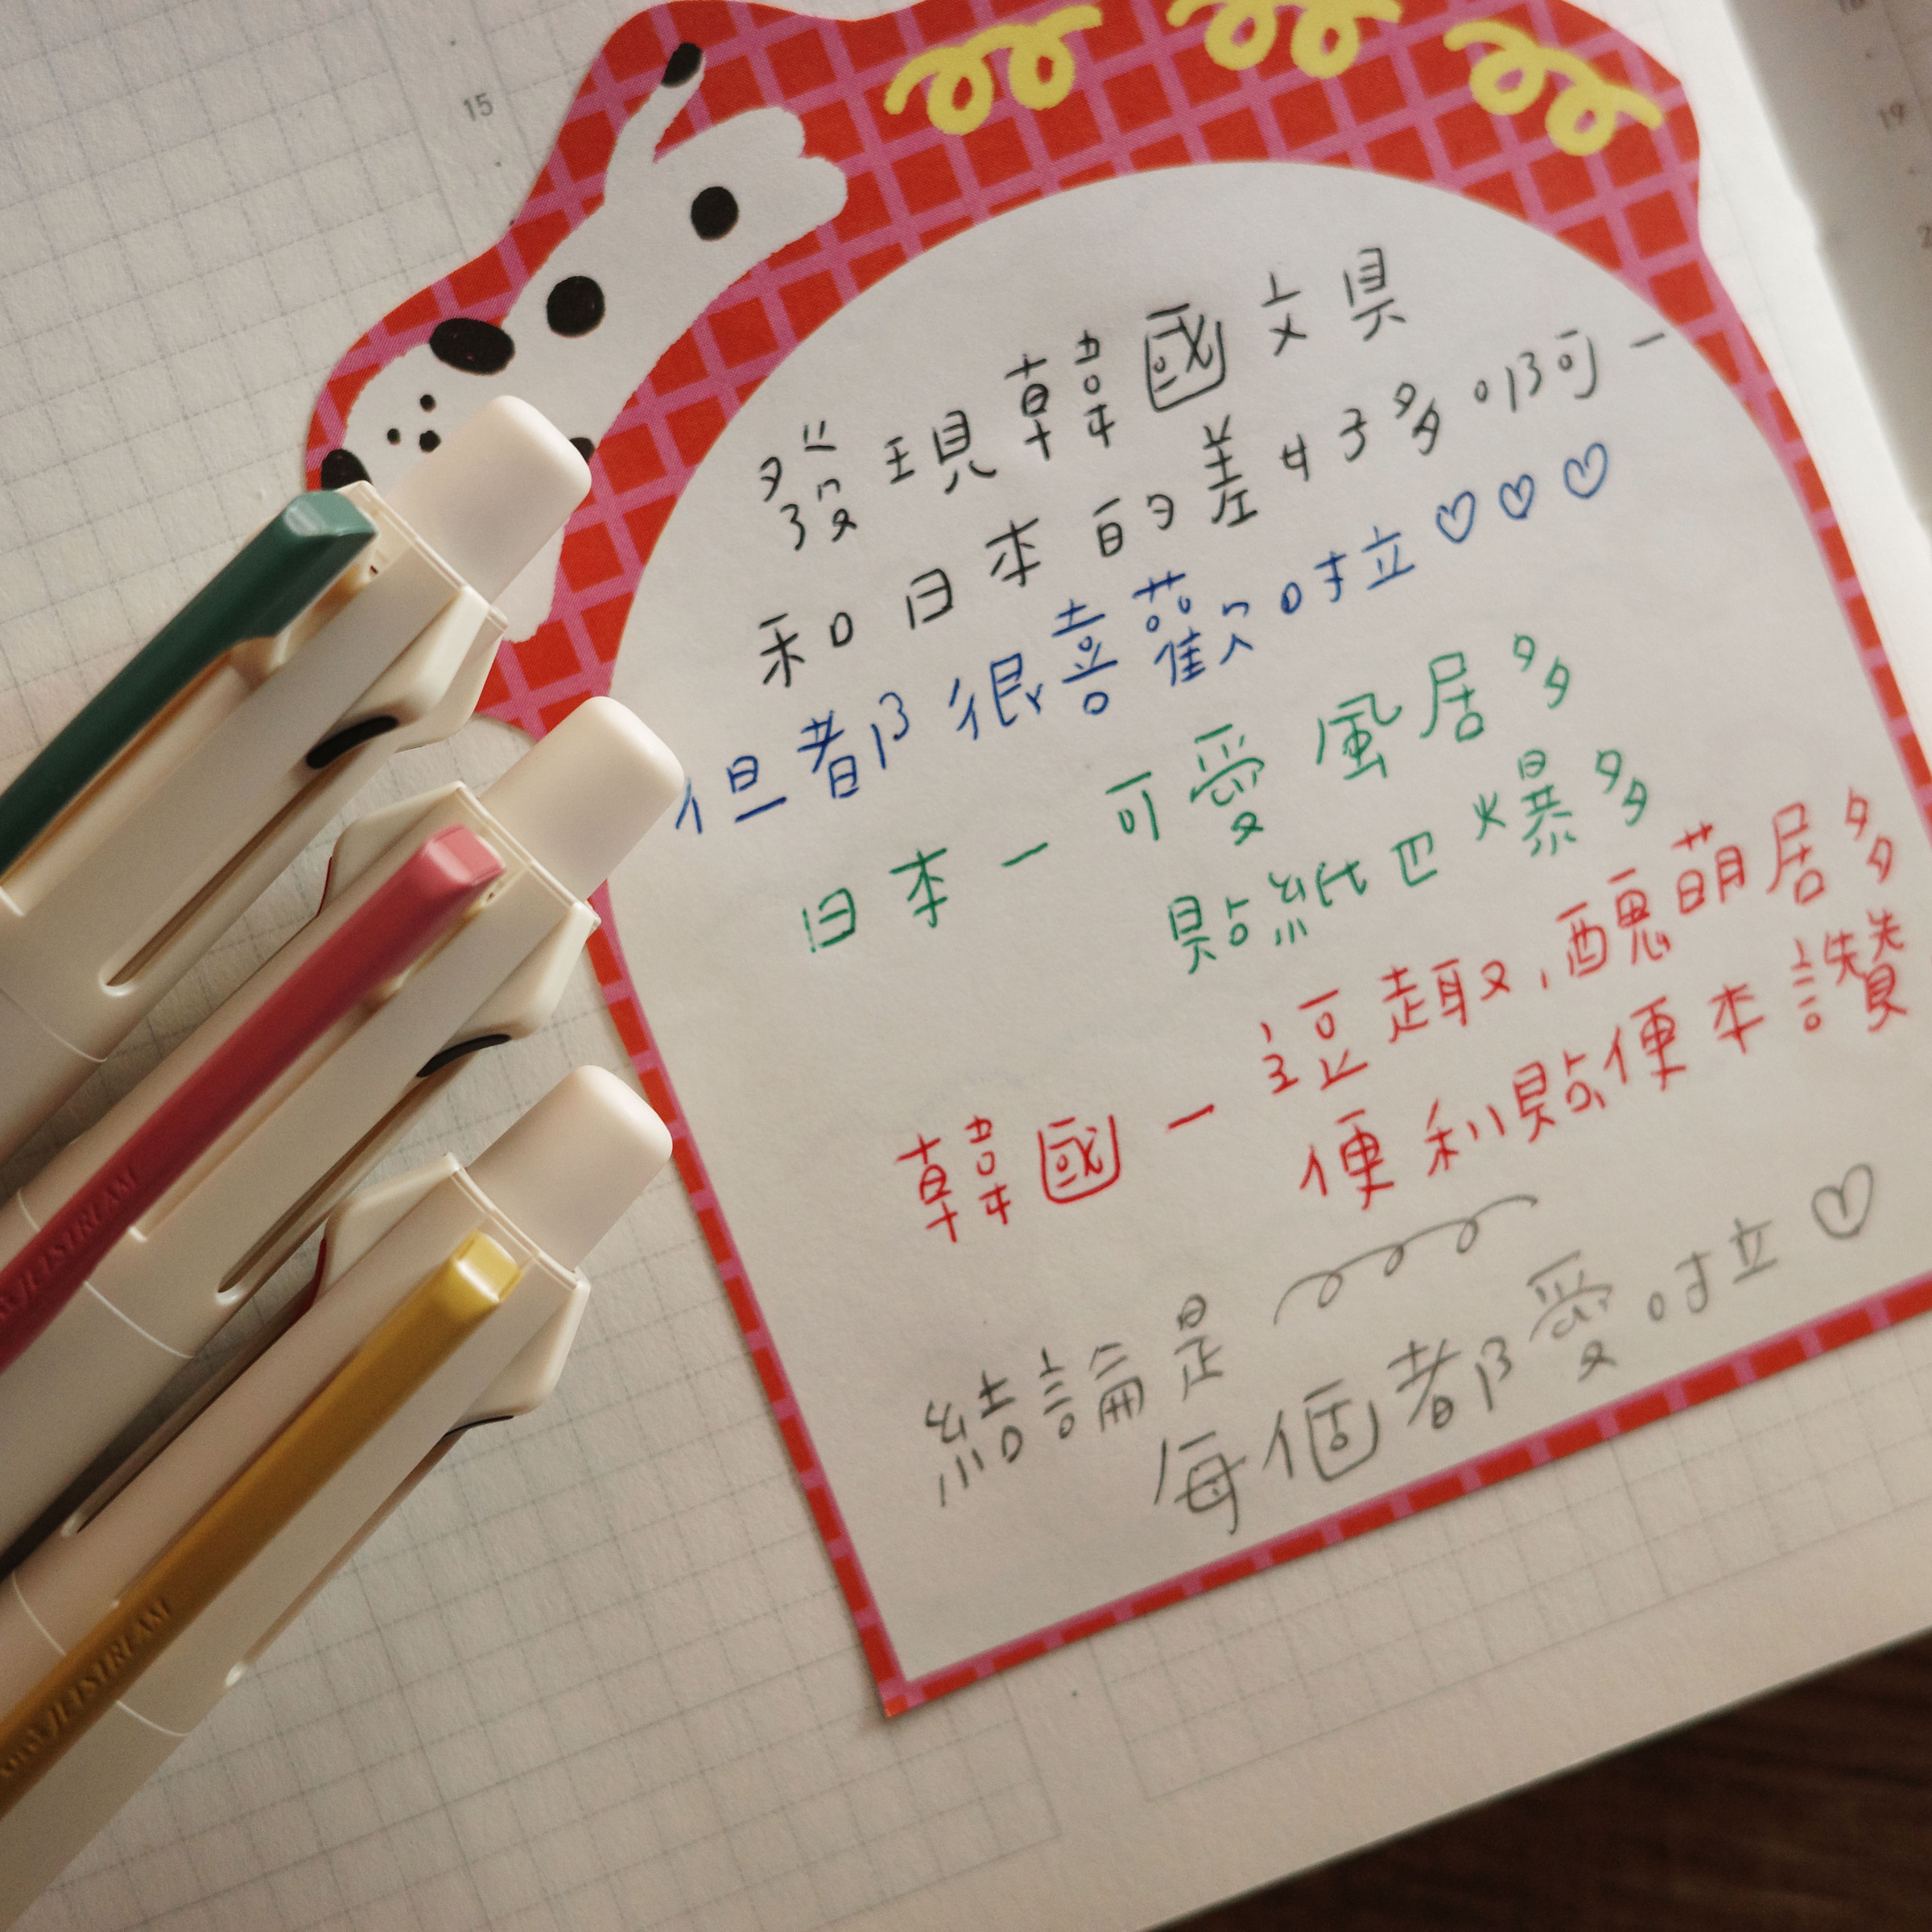 15
19
發現韓國文具
和日本的差好多啊—
但都很喜歡啦♡♡♡
日本 — 可愛風居多
貼紙 爆多
韓國 — 逗趣,醜萌居多
便利貼便本讚
結論是
每個都愛啦♡
JETSTREAM
JETSTREAM